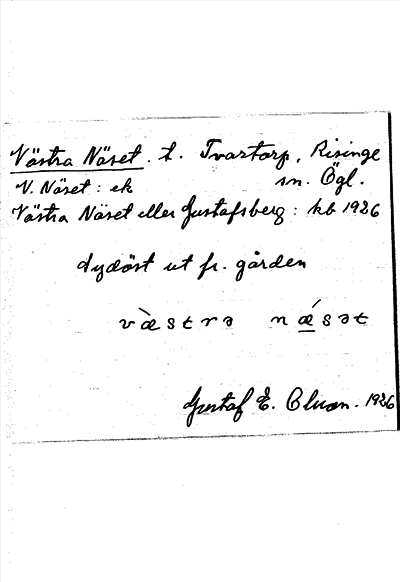 Västra Näset. t. Tvartorp, Risinge
V. Näset: ek sn. Ögl.
Västra Näset eller Gustafsberg: kb 1926
sydöst ut fr. gården
væ̀strə nǽ̲sət
Gustaf E. 1926